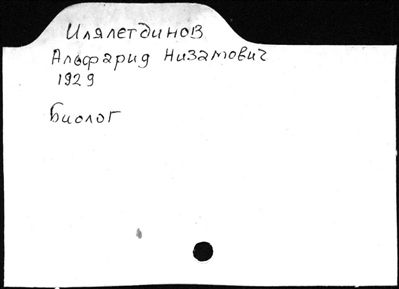 Илялетдинов
Альфарид Низамович
1929
Биолог